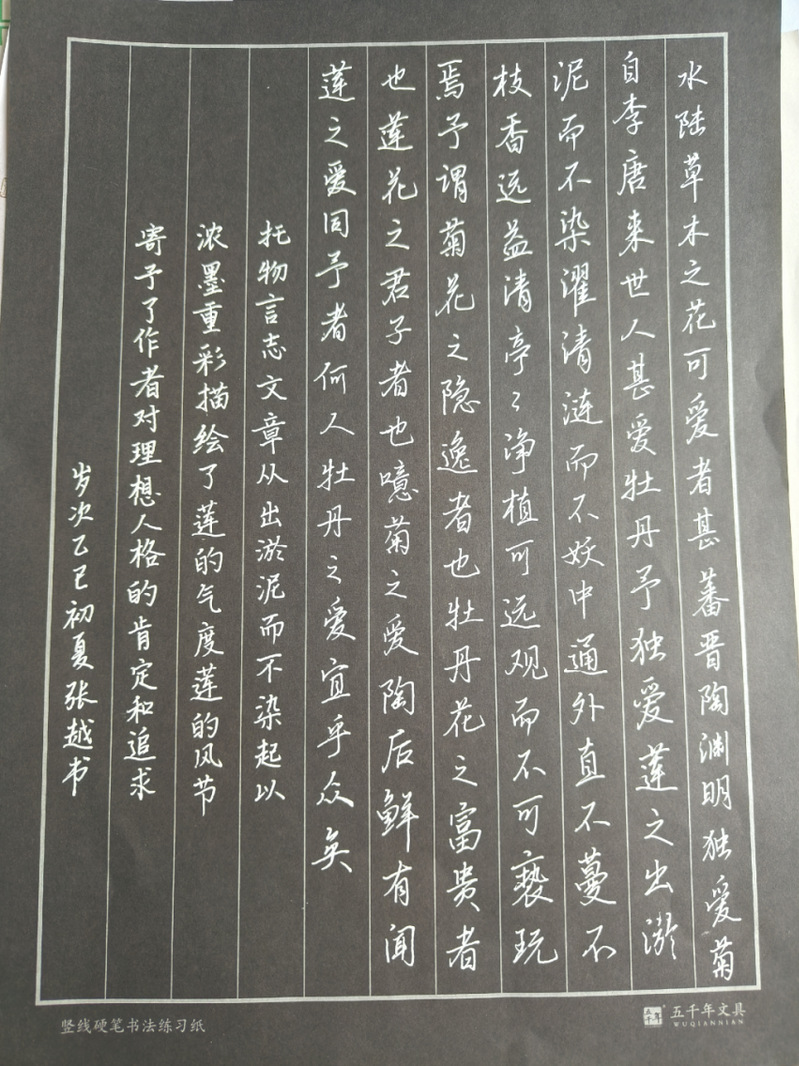 水陆草木之花可爱者甚蕃晋陶渊明独爱菊
自李唐来世人甚爱牡丹予独爱莲之出淤
泥而不染濯清涟而不妖中通外直不蔓不
枝香远益清亭〻净植可远观而不可亵玩
焉予谓菊花之隐逸者也牡丹花之富贵者
也莲花之君子者也噫菊之爱陶后鲜有闻
莲之爱同予者何人牡丹之爱宜乎众矣
托物言志文章从出淤泥而不染起以
浓墨重彩描绘了莲的气度莲的风节
寄予了作者对理想人格的肯定和追求
岁次乙巳初夏张越书
竖线硬笔书法练习纸
五千年文具
WUQIANNIAN